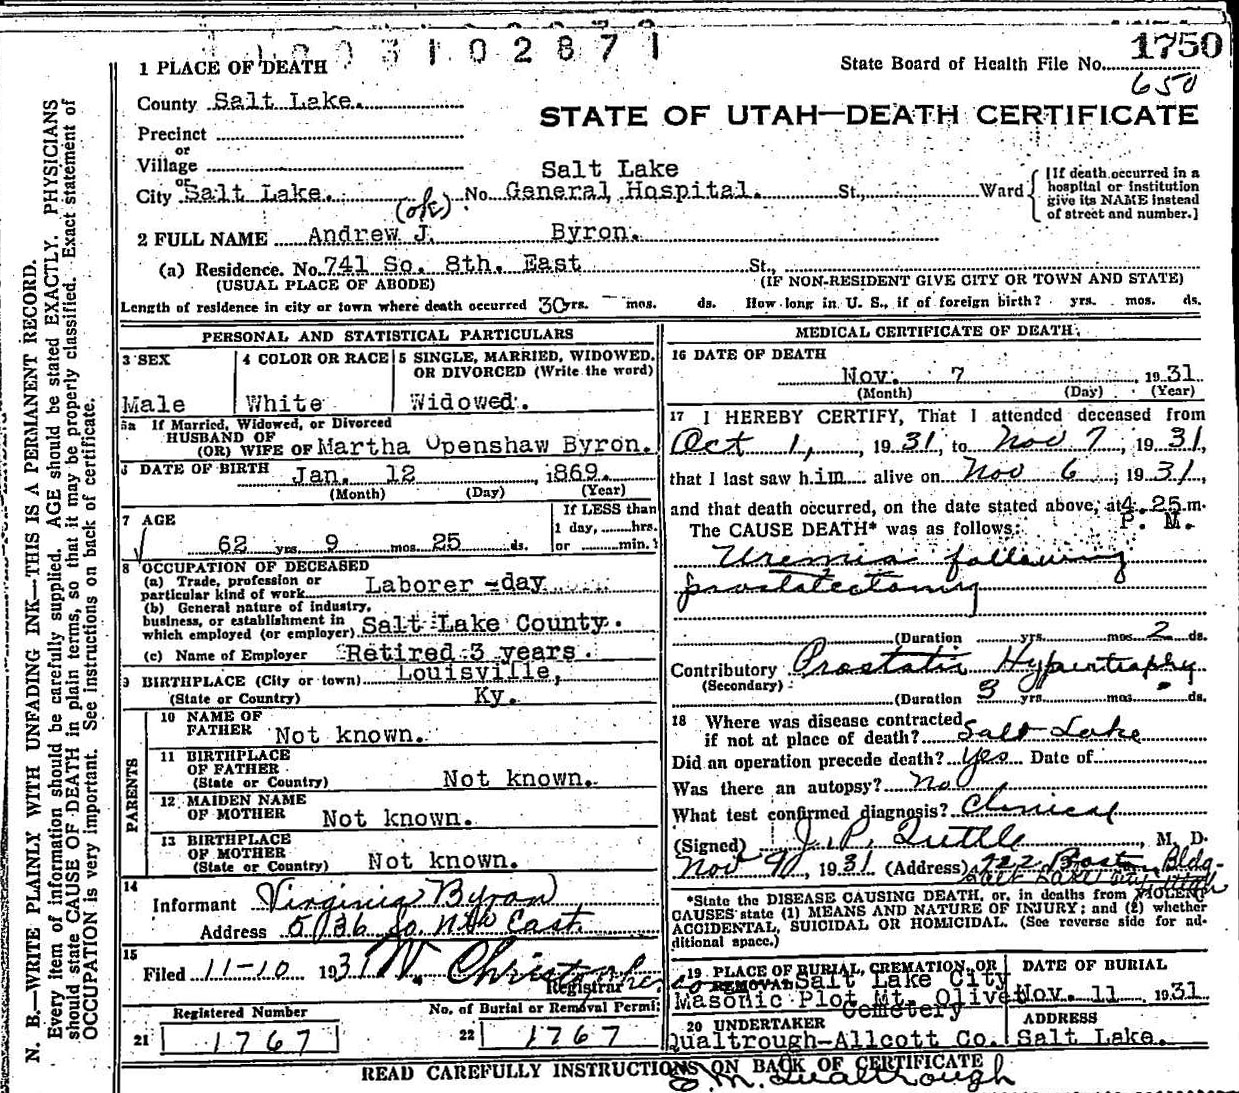 1 9 3 1 0 2 8 7 1
1750
State Board of Health File No.
650
1 PLACE OF DEATH
County Salt Lake.
STATE OF UTAH—DEATH CERTIFICATE
Precinct
or
Village
or
City Salt Lake. (ok) No. Salt Lake General Hospital. St., Ward
[If death occurred in a hospital or institution give its NAME instead of street and number.]
2 FULL NAME Andrew J. Byron.
(a) Residence. No. 741 So. 8th. East St.,
(USUAL PLACE OF ABODE) (IF NON-RESIDENT GIVE CITY OR TOWN AND STATE)
Length of residence in city or town where death occurred 30 yrs. — mos. ds. How long in U. S., if of foreign birth? yrs. mos. ds.
PERSONAL AND STATISTICAL PARTICULARS
3 SEX
Male
4 COLOR OR RACE
White
5 SINGLE, MARRIED, WIDOWED, OR DIVORCED (Write the word)
Widowed.
5a If Married, Widowed, or Divorced
HUSBAND OF
(OR) WIFE OF Martha Openshaw Byron.
6 DATE OF BIRTH Jan. 12, 1869.
(Month) (Day) (Year)
7 AGE
62 yrs 9 mos. 25 ds.
If LESS than
1 day, hrs.
or min.
8 OCCUPATION OF DECEASED
(a) Trade, profession or
particular kind of work Laborer -day
(b) General nature of industry,
business, or establishment in
which employed (or employer) Salt Lake County.
(c) Name of Employer Retired 3 years.
9 BIRTHPLACE (City or town) Louisville,
(State or Country) Ky.
PARENTS
10 NAME OF
FATHER Not known.
11 BIRTHPLACE
OF FATHER
(State or Country) Not known.
12 MAIDEN NAME
OF MOTHER Not known.
13 BIRTHPLACE
OF MOTHER
(State or Country) Not known.
14
Informant Virginia Byron
Address So. East
15
Filed 11-10 1931
Registrar
Registered Number
21 1767
No. of Burial or Removal Permit
22 1767
MEDICAL CERTIFICATE OF DEATH.
16 DATE OF DEATH
Nov. 7 1931
(Month) (Day) (Year)
17 I HEREBY CERTIFY, That I attended deceased from
Oct 1, 1931, to Nov 7, 1931,
that I last saw him alive on Nov 6, 1931,
and that death occurred, on the date stated above, at 4.25 m.
P. M.
The CAUSE DEATH* was as follows:
Uremia following
prostatectomy
(Duration yrs. mos. 2 ds.
Contributory Prostatic Hypertrophy
(Secondary)
(Duration 3 yrs. mos. ds.
18 Where was disease contracted
if not at place of death? Salt Lake
Did an operation precede death? Yes Date of
Was there an autopsy? No
What test confirmed diagnosis? Clinical
(Signed) J. P. Tuttle, M. D.
Nov 9, 1931 (Address) 722 Boston Bldg-
Salt Lake City Utah
*State the DISEASE CAUSING DEATH, or, in deaths from VIOLENT
CAUSES state (1) MEANS AND NATURE OF INJURY; and (2) whether
ACCIDENTAL, SUICIDAL OR HOMICIDAL. (See reverse side for ad-
ditional space.)
19 PLACE OF BURIAL, CREMATION, OR
REMOVAL Salt Lake City
Masonic Plot Mt. Olivet
Cemetery
DATE OF BURIAL
Nov. 11 1931
20 UNDERTAKER
Qualtrough-Allcott Co.
ADDRESS
Salt Lake.
READ CAREFULLY INSTRUCTIONS ON BACK OF CERTIFICATE
M. Qualtrough
N. B.—WRITE PLAINLY WITH UNFADING INK—THIS IS A PERMANENT RECORD.
Every item of information should be carefully supplied. AGE should be stated EXACTLY. PHYSICIANS
should state CAUSE OF DEATH in plain terms, so that it may be properly classified. Exact statement of
OCCUPATION is very important. See instructions on back of certificate.